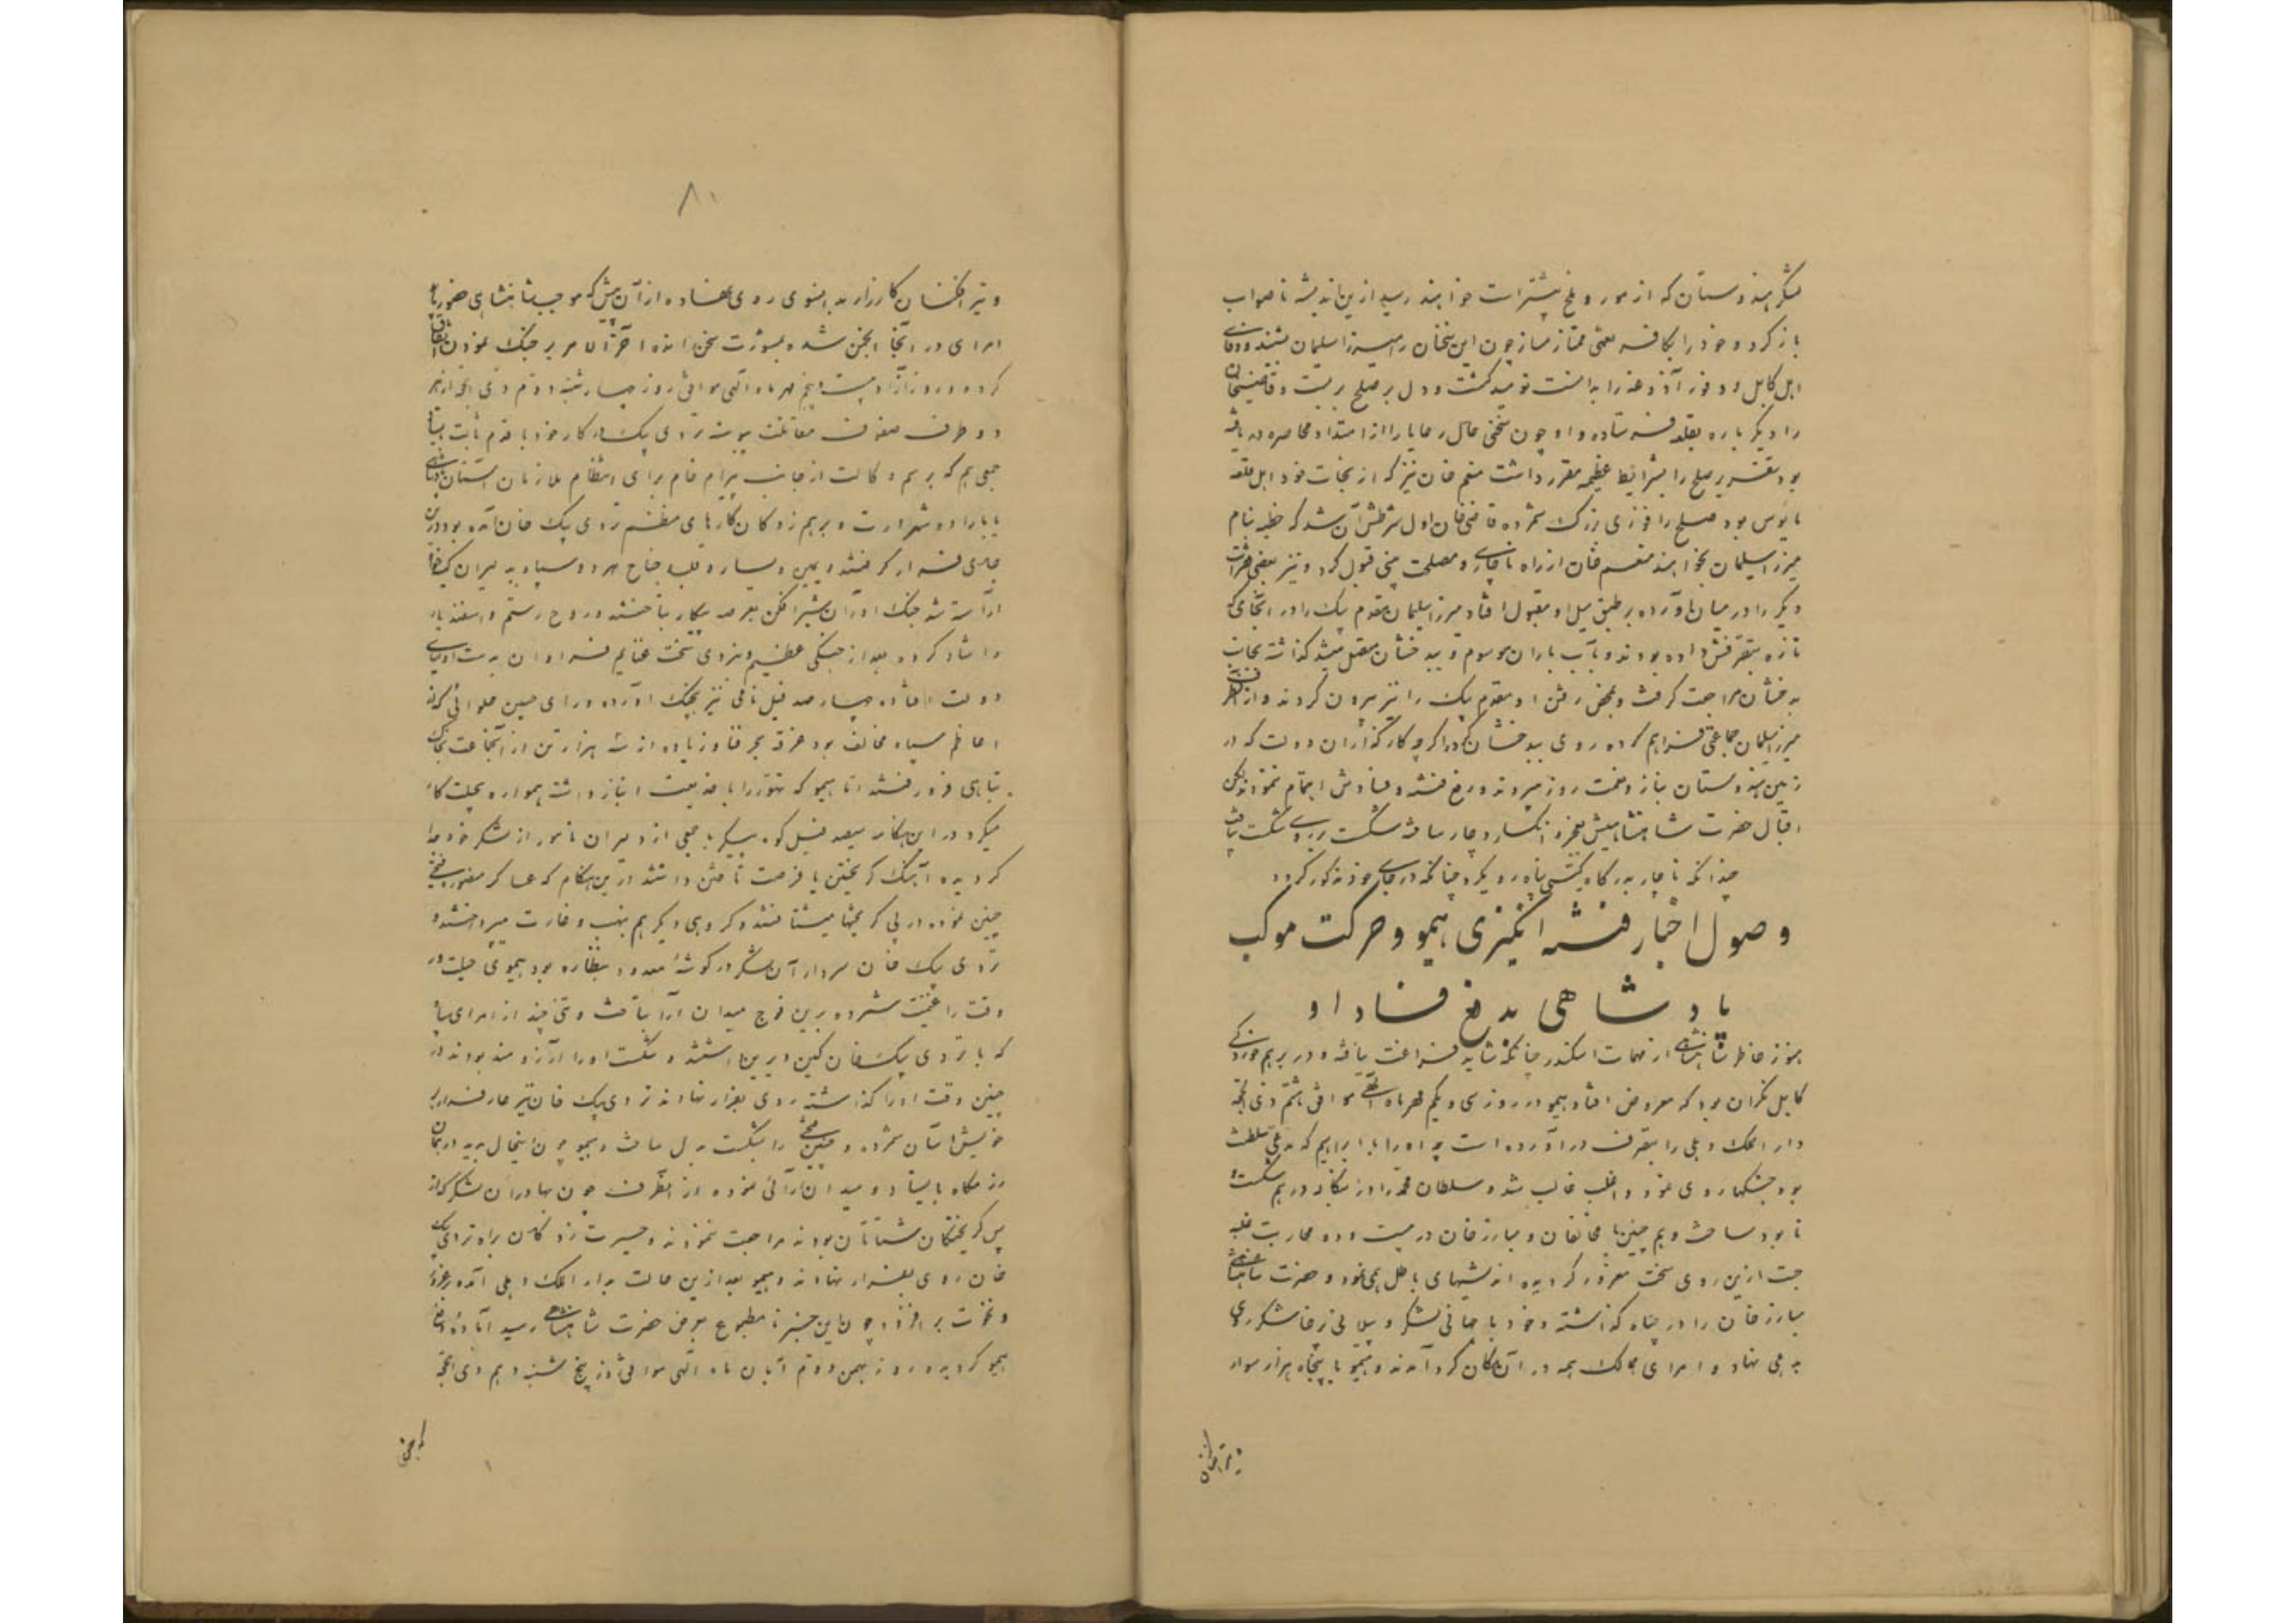 لشکر هندوستان که از مور و ملخ بیشتر است خواهند رسید ازین اندیشه ناصواب
باز کرد و خود را بکافر نعمتی ممتاز مساز چون این سخنان را میرزا سلیمان شنید و وفای
اهل کابل و وفور آذوغه را بدانست نومید گشت و دل بر صلح بربست و قاضیخان
را دیگر باره بقلعه فرستاده و او چون سختی حال رعایا را از امتداد محاصره دریافته
بود تقریر صلح را بشرایط عظیمه مقرر داشت منعم خان نیز که از نجات خود و اهل قلعه
مایوس بود صلح را فوزی بزرگ شمرده قاضی خان اول شرطش آن شد که خطبه بنام
میرزا سلیمان بخوانند منعم خان از راه ناچاری و مصلحت بینی قبول کرد و نیز بعضی شرایط
دیگر را در میان آورده بر طبق میل او مقبول افتاد میرزا سلیمان مقدم بیک را در آنجای که
تازه بتصرفش داده بودند و بآب باران موسوم و ببدخشان متصل میشد گذاشته بجانب
بدخشان مراجعت گرفت و بمحض رفتن او مقدم بیک را نیز بیرون کردند و از آنطرف
میرزا سلیمان جماعتی فراهم کرده روی ببدخشان کرد اگرچه کارگذاران دولت که در
زمین هندوستان بناز و نعمت روز میبردند و رفع فتنه و فسادش اهتمام ننمودند لیکن
اقبال حضرت شاهنشاهیش بعجز و انکسار دچار ساخته شکست بر وی شکست یافت
چندانکه ناچار بدرگاه گیتی پناه رو بکرد چنانکه در جای خود مذکور گردد
وصول اخبار فتنه انگیزی هیمو و حرکت موکب
پادشاهی بدفع فساد او
هنوز خاطر شاهنشاهی از مهمات اسکندر چنانکه شاید فراغت نیافته و در برهم خوردگی
کابل نگران بود که معروض افتاد هیمو در روز سی و یکم مهرماه الهی موافق هشتم ذی الحجه
دار الملک دهلی را بتصرف درآورده است چه او را با ابراهیم که مدعی سلطنت
بود جنگها روی نمود و اغلب غالب شد و سلطان محمد را در بنگاله درهم شکسته
نابود ساخت و هم چنین با مخالفان و مبارز خان در بیست و دو محاربت غلبه
جست ازین روی سخت مغرور گردیده اندیشهای باطل همی نمود و حضرت شاهنشاهی
مبارز خان را در چناه گذاشته و خود با جهانی لشکر و پیلانی زخا شکر روی
بدهلی نهاد و امرای ممالک همه در آن مکان گرد آمدند و هیمو با پنجاه هزار سوار
۸۰
و تیر افکنان کارزار بدانسوی روی نهاده از آن پیش که موکب شاهنشاهی حضور یابد
امرای در آنجا انجمن شده بمشورت سخن راندند آخر الامر بر جنگ نمودن اتفاق
کرده در روز آزاد بیست و پنجم مهرماه الهی موافق روز چهارشنبه دوم ذی الحجه از هر
دو طرف صفوف مقاتلت پیوست تردی بیک در کار خود با قدم ثابت بایستاد
جمعی هم که برسم وکالت از جانب بیرام خان برای انتظام ملازمان آستان شاهنشاهی
با اراده شرارت و برهم زدگان کارهای منظم تردی بیک خان آمده بود درین
جای قرار گرفتند و یمین و یسار و قلب جناح هر دو سپاه به دلیران کینه خواه
آراسته شد جنگ آوران شیر افکن بعرصه پیکار بتاختند و روح رستم و اسفندیار
را شاد کرده بعد از جنگی عظیم و نبردی سخت غنایم فراوان بدست اولیای
دولت افتاد چهارصد فیل نامی نیز بچنگ آورده و رای حسین جلوانی که از
اعاظم سپاه مخالف بود غرقه بحر فنا و زیاده از سه هزار تن از آنجماعت بخاک
تباهی فرو رفتند اما هیمو که تهور را با خدیعت انباز داشت همواره بحیلت کار
میکرد در این هنگامه سیصد فیل کوه پیکر با جمعی از دلیران نامور از لشکر خود جدا
گردیده آهنگ گریختن یا فرصت تاختن داشتند در این هنگام که عساکر منصوره فتحی
چنین نموده در پی گریختها میشتافتند و گروهی دیگر هم بنهب و غارت میپرداختند و
تردی بیک خان سردار آن لشکر در گوشه معدود بنظاره بود هیموی حیلت ور
وقت را غنیمت شمرده بر این فوج میدان آرا بتاخت و تنی چند از امرای سپاه
که با تردی بیک خان کین دیرین داشتند و شکست او را آرزومند بودند در
چنین وقت او را گذاشته روی بفرار نهادند تردی بیک خان نیز عار فرار بر
خویش آسان شمرده و چنین فتحی را بشکست بدل ساخت و هیمو چون اینحال بدید در همان
رزمگاه بایستاد و میدان آرائی نموده از آنطرف چون بهادران لشکر که از
پس گریختگان شتابان بودند مراجعت نمودند و حیرت زدگان براه تردی بیک
خان روی بفرار نهادند و هیمو بعد از این حالت بدار الملک دهلی آمده بر غرور
و نخوت بر افزود چون این خبر نامطبوع بعرض حضرت شاهنشاهی رسید آماده دفع
هیمو گردیده روز بهمن دوم آبان ماه الهی موافق روز پنج شنبه دهم ذی الحجه